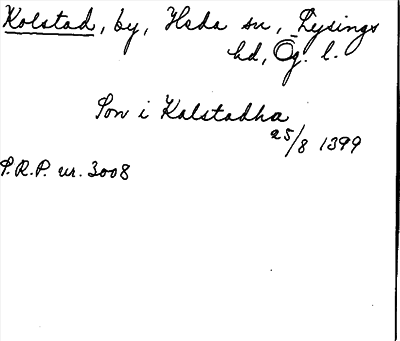 Kolstad, by, Heda sn, Lysings
hd, Ög. l.
Son i Kalstadha
25/8 1399
P.R.P. nr. 3008